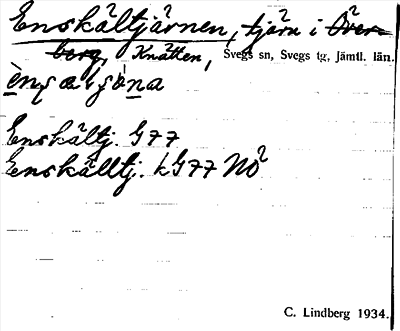 Enskältjärnen, tjärn i Över-
berg, Knätten, Svegs sn, Svegs tg, Jämtl. län.
Enskältj. G77
Enskälltj. LG77 NÖ
C. Lindberg 1934.